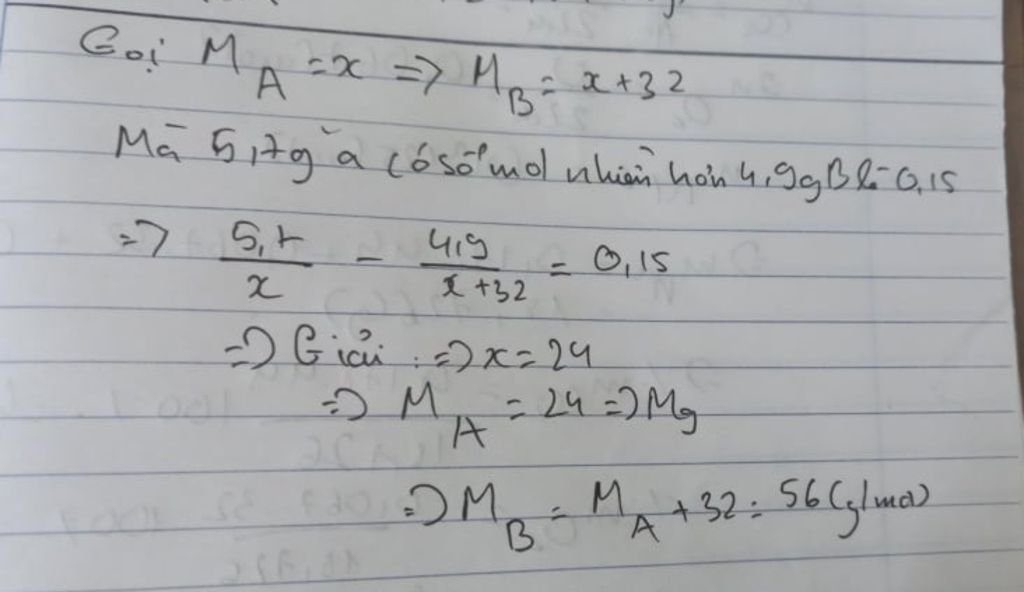 Gọi M_A = x => M_B = x+32
Mà 5,7g A có số mol nhiều hơn 4,9g B là 0,15
=> 5,7/x - 4,9/(x+32) = 0,15
=> Giải : => x = 24
=> M_A = 24 => Mg
=> M_B = M_A + 32 = 56 (g/mol)